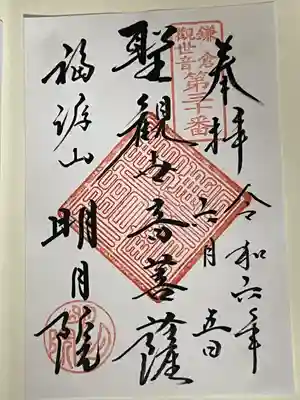 奉拝
令和六年
六月五日
鎌倉
観世音
第三十番
聖観世音菩薩
福源山
明月院